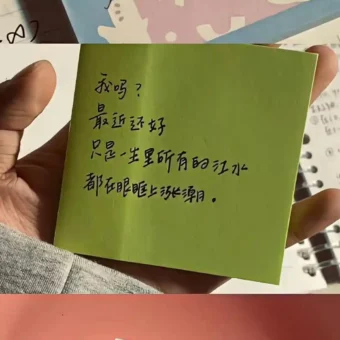 我吗？
最近还好
只是一生里所有的江水
都在眼眶上涨潮。